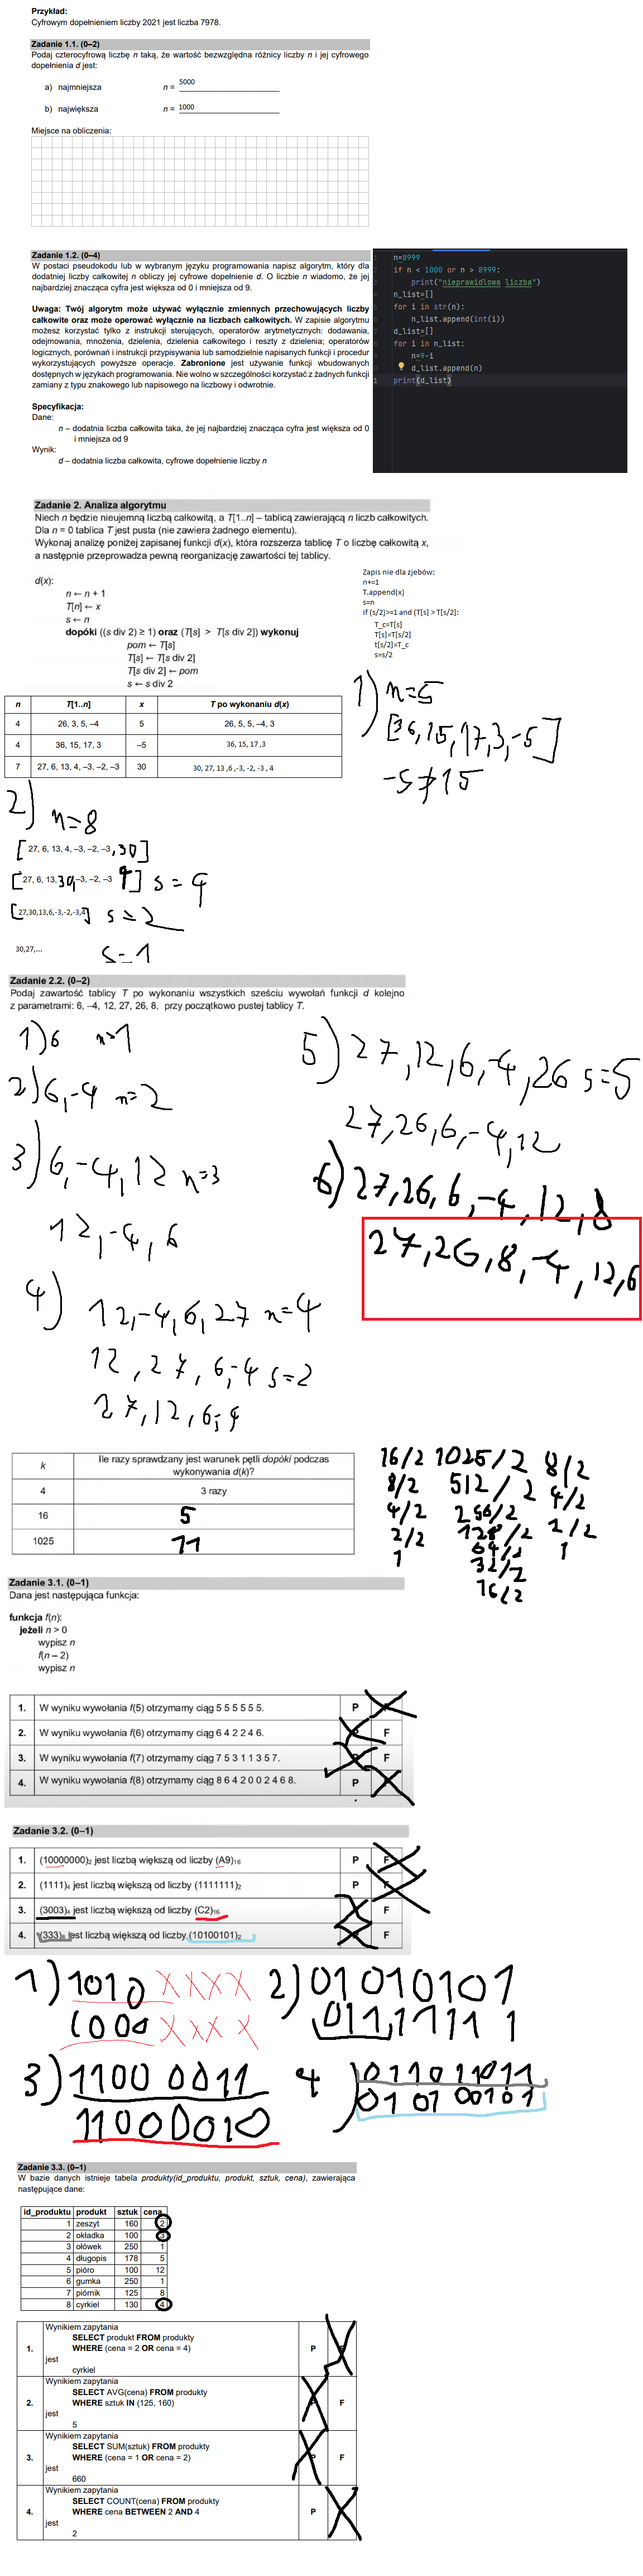 Przykład:
Cyfrowym dopełnieniem liczby 2021 jest liczba 7978.
Zadanie 1.1. (0–2)
Podaj czterocyfrową liczbę n taką, że wartość bezwzględna różnicy liczby n i jej cyfrowego
dopełnienia d jest:
a) najmniejsza n = 5000
b) największa n = 1000
Miejsce na obliczenia:
Zadanie 1.2. (0–4)
W postaci pseudokodu lub w wybranym języku programowania napisz algorytm, który dla
dodatniej liczby całkowitej n obliczy jej cyfrowe dopełnienie d. O liczbie n wiadomo, że jej
najbardziej znacząca cyfra jest większa od 0 i mniejsza od 9.
Uwaga: Twój algorytm może używać wyłącznie zmiennych przechowujących liczby
całkowite oraz może operować wyłącznie na liczbach całkowitych. W zapisie algorytmu
możesz korzystać tylko z instrukcji sterujących, operatorów arytmetycznych: dodawania,
odejmowania, mnożenia, dzielenia, dzielenia całkowitego i reszty z dzielenia; operatorów
logicznych, porównań i instrukcji przypisywania lub samodzielnie napisanych funkcji i procedur
wykorzystujących powyższe operacje. Zabronione jest używanie funkcji wbudowanych
dostępnych w językach programowania. Nie wolno w szczególności korzystać z żadnych funkcji
zamiany z typu znakowego lub napisowego na liczbowy i odwrotnie.
Specyfikacja:
Dane:
n – dodatnia liczba całkowita taka, że jej najbardziej znacząca cyfra jest większa od 0
i mniejsza od 9
Wynik:
d – dodatnia liczba całkowita, cyfrowe dopełnienie liczby n
n=8999
if n < 1000 or n > 8999:
print("nieprawidlowa liczba")
n_list=[]
for i in str(n):
n_list.append(int(i))
d_list=[]
for i in n_list:
n=9-i
d_list.append(n)
print(d_list)
Zadanie 2. Analiza algorytmu
Niech n będzie nieujemną liczbą całkowitą, a T[1..n] – tablicą zawierającą n liczb całkowitych.
Dla n = 0 tablica T jest pusta (nie zawiera żadnego elementu).
Wykonaj analizę poniżej zapisanej funkcji d(x), która rozszerza tablicę T o liczbę całkowitą x,
a następnie przeprowadza pewną reorganizację zawartości tej tablicy.
d(x):
n ← n + 1
T[n] ← x
s ← n
dopóki ((s div 2) ≥ 1) oraz (T[s] > T[s div 2]) wykonuj
pom ← T[s]
T[s] ← T[s div 2]
T[s div 2] ← pom
s ← s div 2
Zapis nie dla zjebów:
n+=1
T.append(x)
s=n
if (s/2)>=1 and (T[s] > T[s/2]:
T_c=T[s]
T[s]=T[s/2]
t[s/2]=T_c
s=s/2
n T[1..n] x T po wykonaniu d(x)
4 26, 3, 5, –4 5 26, 5, 5, -4, 3
4 36, 15, 17, 3 –5 36, 15, 17,3
7 27, 6, 13, 4, –3, –2, –3 30 30, 27, 13 ,6 ,-3, -2, -3 , 4
1) n=5
[36,15,17,3,-5]
-5≯15
2)
n=8
[27, 6, 13, 4, –3, –2, –3 ,30]
[27, 6, 13, 30, –3, –2, –3 4] s=4
[27,30,13,6,-3,-2,-3,4] s=2
30,27,... s=1
Zadanie 2.2. (0–2)
Podaj zawartość tablicy T po wykonaniu wszystkich sześciu wywołań funkcji d kolejno
z parametrami: 6, –4, 12, 27, 26, 8, przy początkowo pustej tablicy T.
1) 6 n=1
2) 6,-4 n=2
3) 6,-4,12 n=3
12,-4,6
4) 12,-4,6,27 n=4
12,27,6,-4 s=2
27,12,6,-4
5) 27,12,6,-4,26 s=5
27,26,6,-4,12
6) 27,26,6,-4,12,8
27,26,8,-4,12,6
k Ile razy sprawdzany jest warunek pętli dopóki podczas
wykonywania d(k)?
4 3 razy
16 5
1025 11
16/2 1025/2 8/2
8/2 512/2 4/2
4/2 256/2 2/2
2/2 128/2 1
1 64/2
32/2
16/2
Zadanie 3.1. (0–1)
Dana jest następująca funkcja:
funkcja f(n):
jeżeli n > 0
wypisz n
f(n – 2)
wypisz n
1. W wyniku wywołania f(5) otrzymamy ciąg 5 5 5 5 5 5. P
2. W wyniku wywołania f(6) otrzymamy ciąg 6 4 2 2 4 6. F
3. W wyniku wywołania f(7) otrzymamy ciąg 7 5 3 1 1 3 5 7. P F
4. W wyniku wywołania f(8) otrzymamy ciąg 8 6 4 2 0 0 2 4 6 8. P
Zadanie 3.2. (0–1)
1. (10000000)2 jest liczbą większą od liczby (A9)16 P F
2. (1111)4 jest liczbą większą od liczby (1111111)2 P
3. (3003)4 jest liczbą większą od liczby (C2)16 F
4. (333)8 jest liczbą większą od liczby (10100101)2 F
1) 1010 XXXX
1000 XXXX
2) 01010101
01111111
3) 1100 0011
11000010
4) 011011011
010100101
Zadanie 3.3. (0–1)
W bazie danych istnieje tabela produkty(id_produktu, produkt, sztuk, cena), zawierająca
następujące dane:
id_produktu produkt sztuk cena
1 zeszyt 160 2
2 okładka 100 3
3 ołówek 250 1
4 długopis 178 5
5 pióro 100 12
6 gumka 250 1
7 piórnik 125 8
8 cyrkiel 130 4
1. Wynikiem zapytania
SELECT produkt FROM produkty
WHERE (cena = 2 OR cena = 4)
jest
cyrkiel
P
2. Wynikiem zapytania
SELECT AVG(cena) FROM produkty
WHERE sztuk IN (125, 160)
jest
5
F
3. Wynikiem zapytania
SELECT SUM(sztuk) FROM produkty
WHERE (cena = 1 OR cena = 2)
jest
660
P F
4. Wynikiem zapytania
SELECT COUNT(cena) FROM produkty
WHERE cena BETWEEN 2 AND 4
jest
2
P